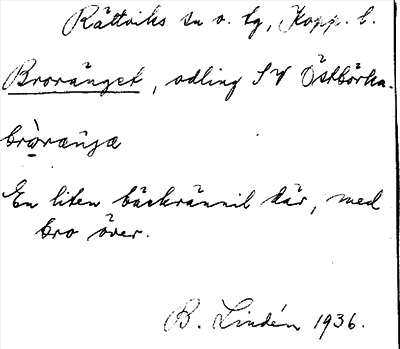 Rättviks sn o. tg, Kopp. l.
Broränget, odling SV Östbörka.
En liten bäckrännil där, med
bro över.
B. Lindén 1936.